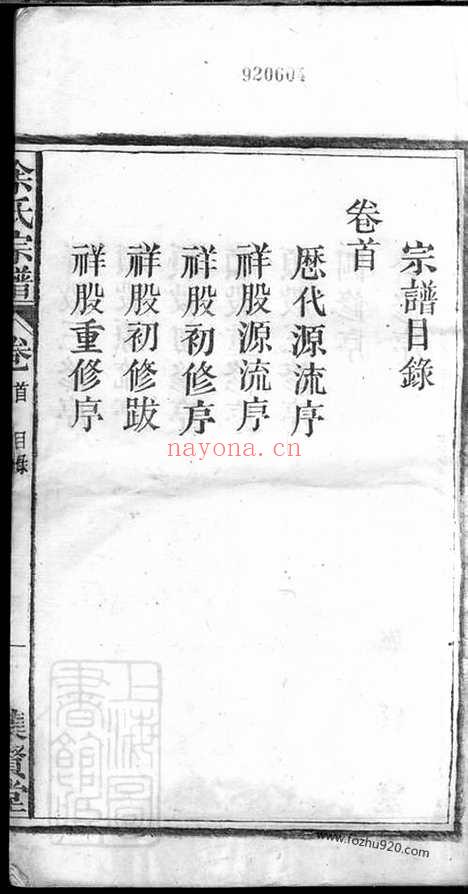 920604
宗譜目錄
卷首
歷代源流序
祥股源流序
祥股初修序
祥股初修跋
祥股重修序
余氏宗譜
卷首 目錄
賢堂
nayona.cn
www.fozhu920.com